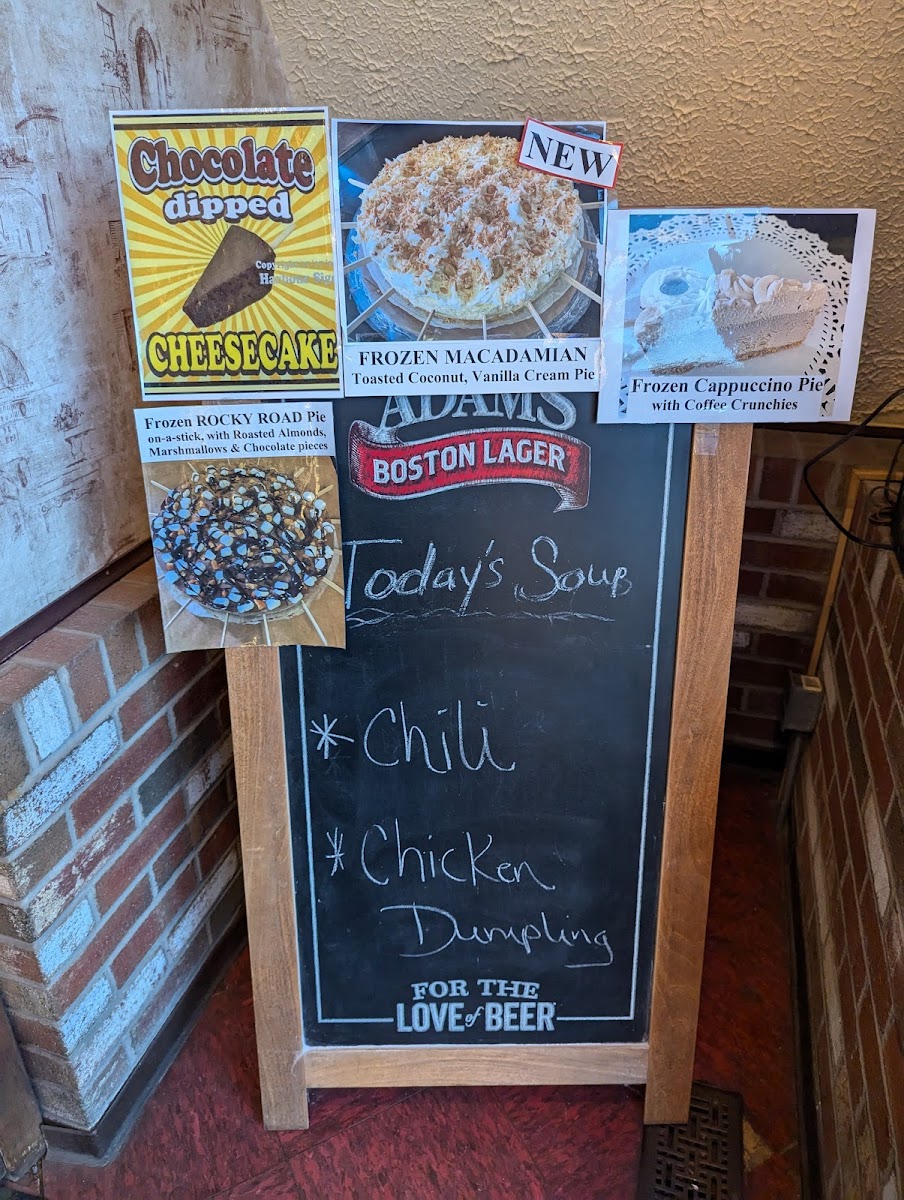 Chocolate
dipped
CHEESECAKE
NEW
FROZEN MACADAMIAN
Toasted Coconut, Vanilla Cream Pie
Frozen Cappuccino Pie
with Coffee Crunchies
Frozen ROCKY ROAD Pie
on-a-stick, with Roasted Almonds,
Marshmallows & Chocolate pieces
ADAMS
BOSTON LAGER
Today's Soup
* Chili
* Chicken
Dumpling
FOR THE
LOVE of BEER